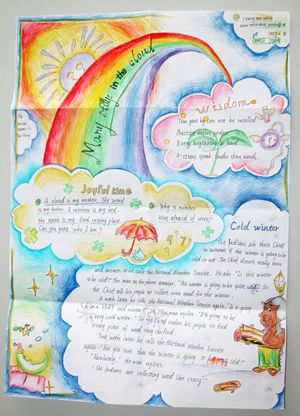 Many story in the cloud
Wisdom
Time past be can not be recalled
Practice makes perfect
Every beginning is hard
Actions speak louder than words.
Joyful time
A cloud is my mother. The wind
is my father. A rainbow is my bed.
the earth is my final resting place
Can you guess, who I am?
Why is number
nine afraid of seven?
Cold winter
The Indians ask their Chief
in autumn if the winter is going to be
cold or not. The Chief doesn't really know
and answer so he calls the National Weather Service.
to be cold? the man on the phone answers. "This winter is going to be quite cold." So
the Chief tells his people to collect some wood for the winter.
A week later he calls the National Weather Service again. "Is it going to be
cold winter?" the man replies. "It's going to be
very cold winter." So the Chief orders his people to find
every piece of wood they can find.
Two weeks later he calls the National Weather Service
again. "Are you sure that the winter is going to be very cold?"
"Absolutely," the man replies,
"the Indians are collecting wood like crazy!"